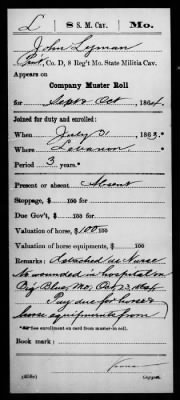 L | 8 S. M. Cav. | Mo.
John Lyman
Pvt, Co. D, 8 Reg't Mo. State Militia Cav.
Appears on
Company Muster Roll
for Sept & Oct, 1864.
Joined for duty and enrolled:
When July 31, 1863.
Where Lebanon
Period 3 years.*
Present or absent Absent
Stoppage, $ 100 for
Due Gov't, $ 100 for
Valuation of horse, $ 100 100
Valuation of horse equipments, $ 100
Remarks: detached as Nurse
to wounded in hospital on
Big Blue, Mo, Oct 23, 1864
Pay due for horse &
horse equipments from
*See enrollment on card from muster-in roll.
Book mark:
(358c)
Copyist.